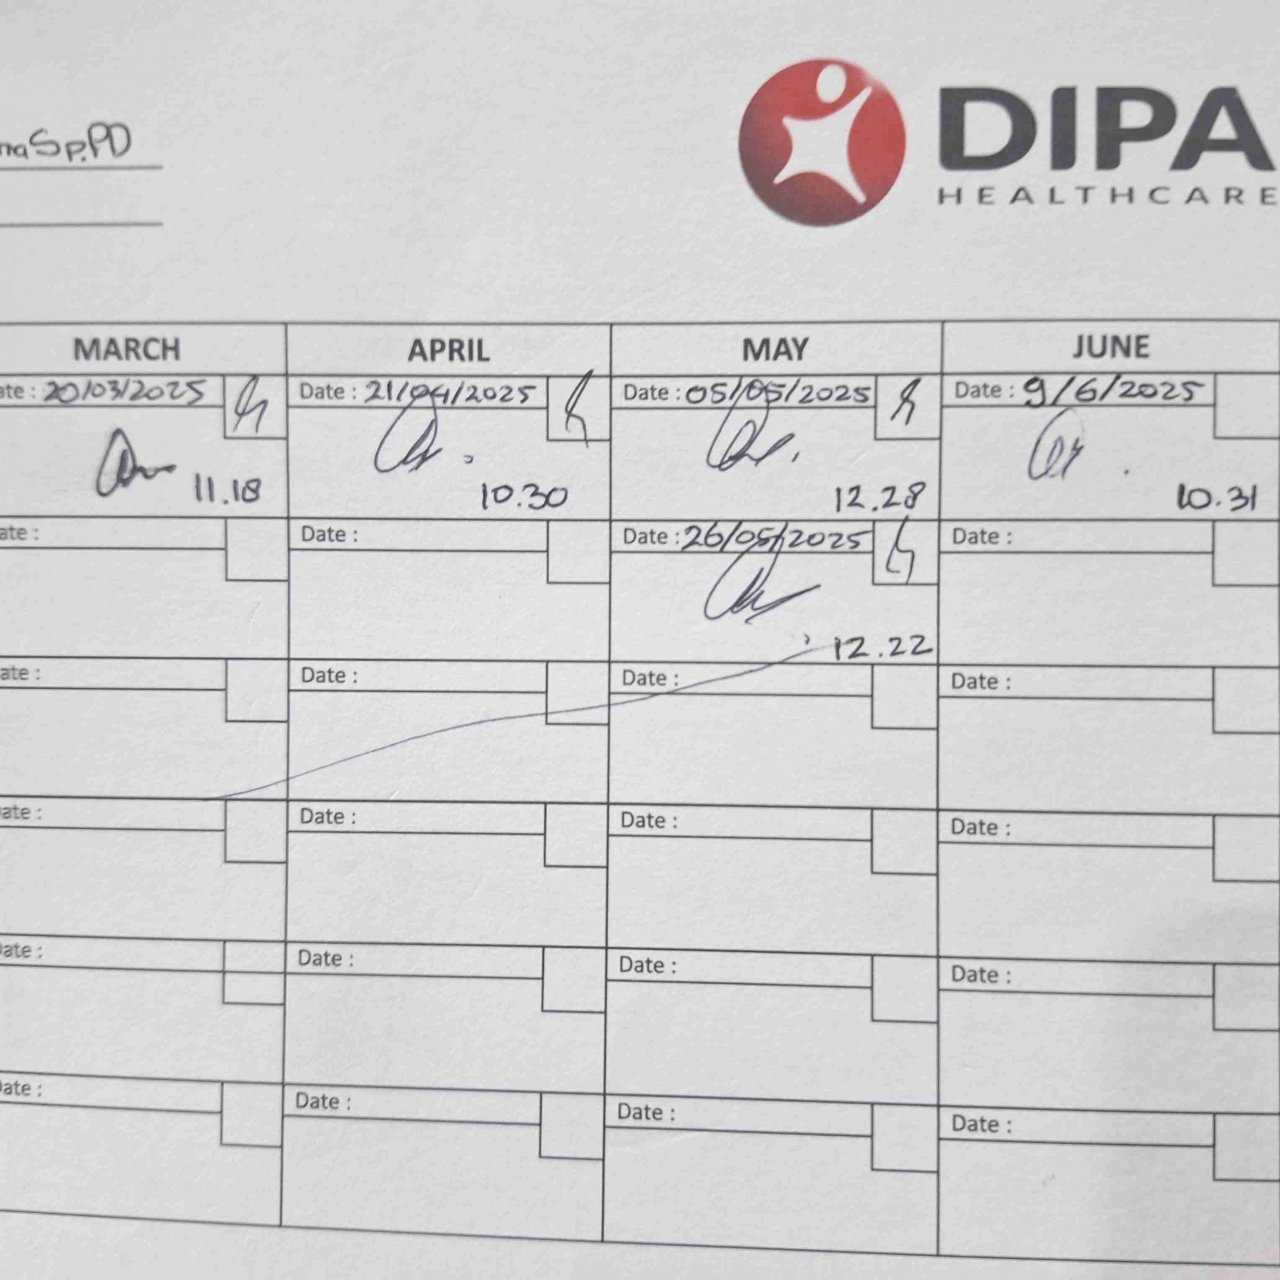 naSp.PD
DIPA
HEALTHCARE
MARCH APRIL MAY JUNE
ate : 20/03/2025 Date : 21/04/2025 Date : 05/05/2025 Date : 9/6/2025
11.18 10.30 12.28 10.31
ate : Date : Date : 26/05/2025 Date :
12.22
ate : Date : Date : Date :
ate : Date : Date : Date :
Date : Date : Date : Date :
Date : Date : Date : Date :